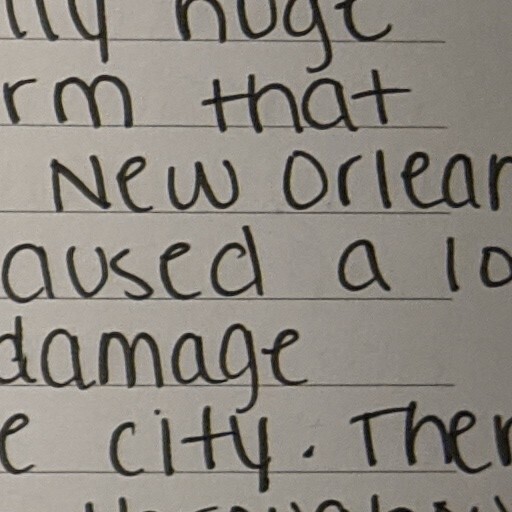 lly huge
rm that
New Orlean
aused a lo
damage
e city. Ther